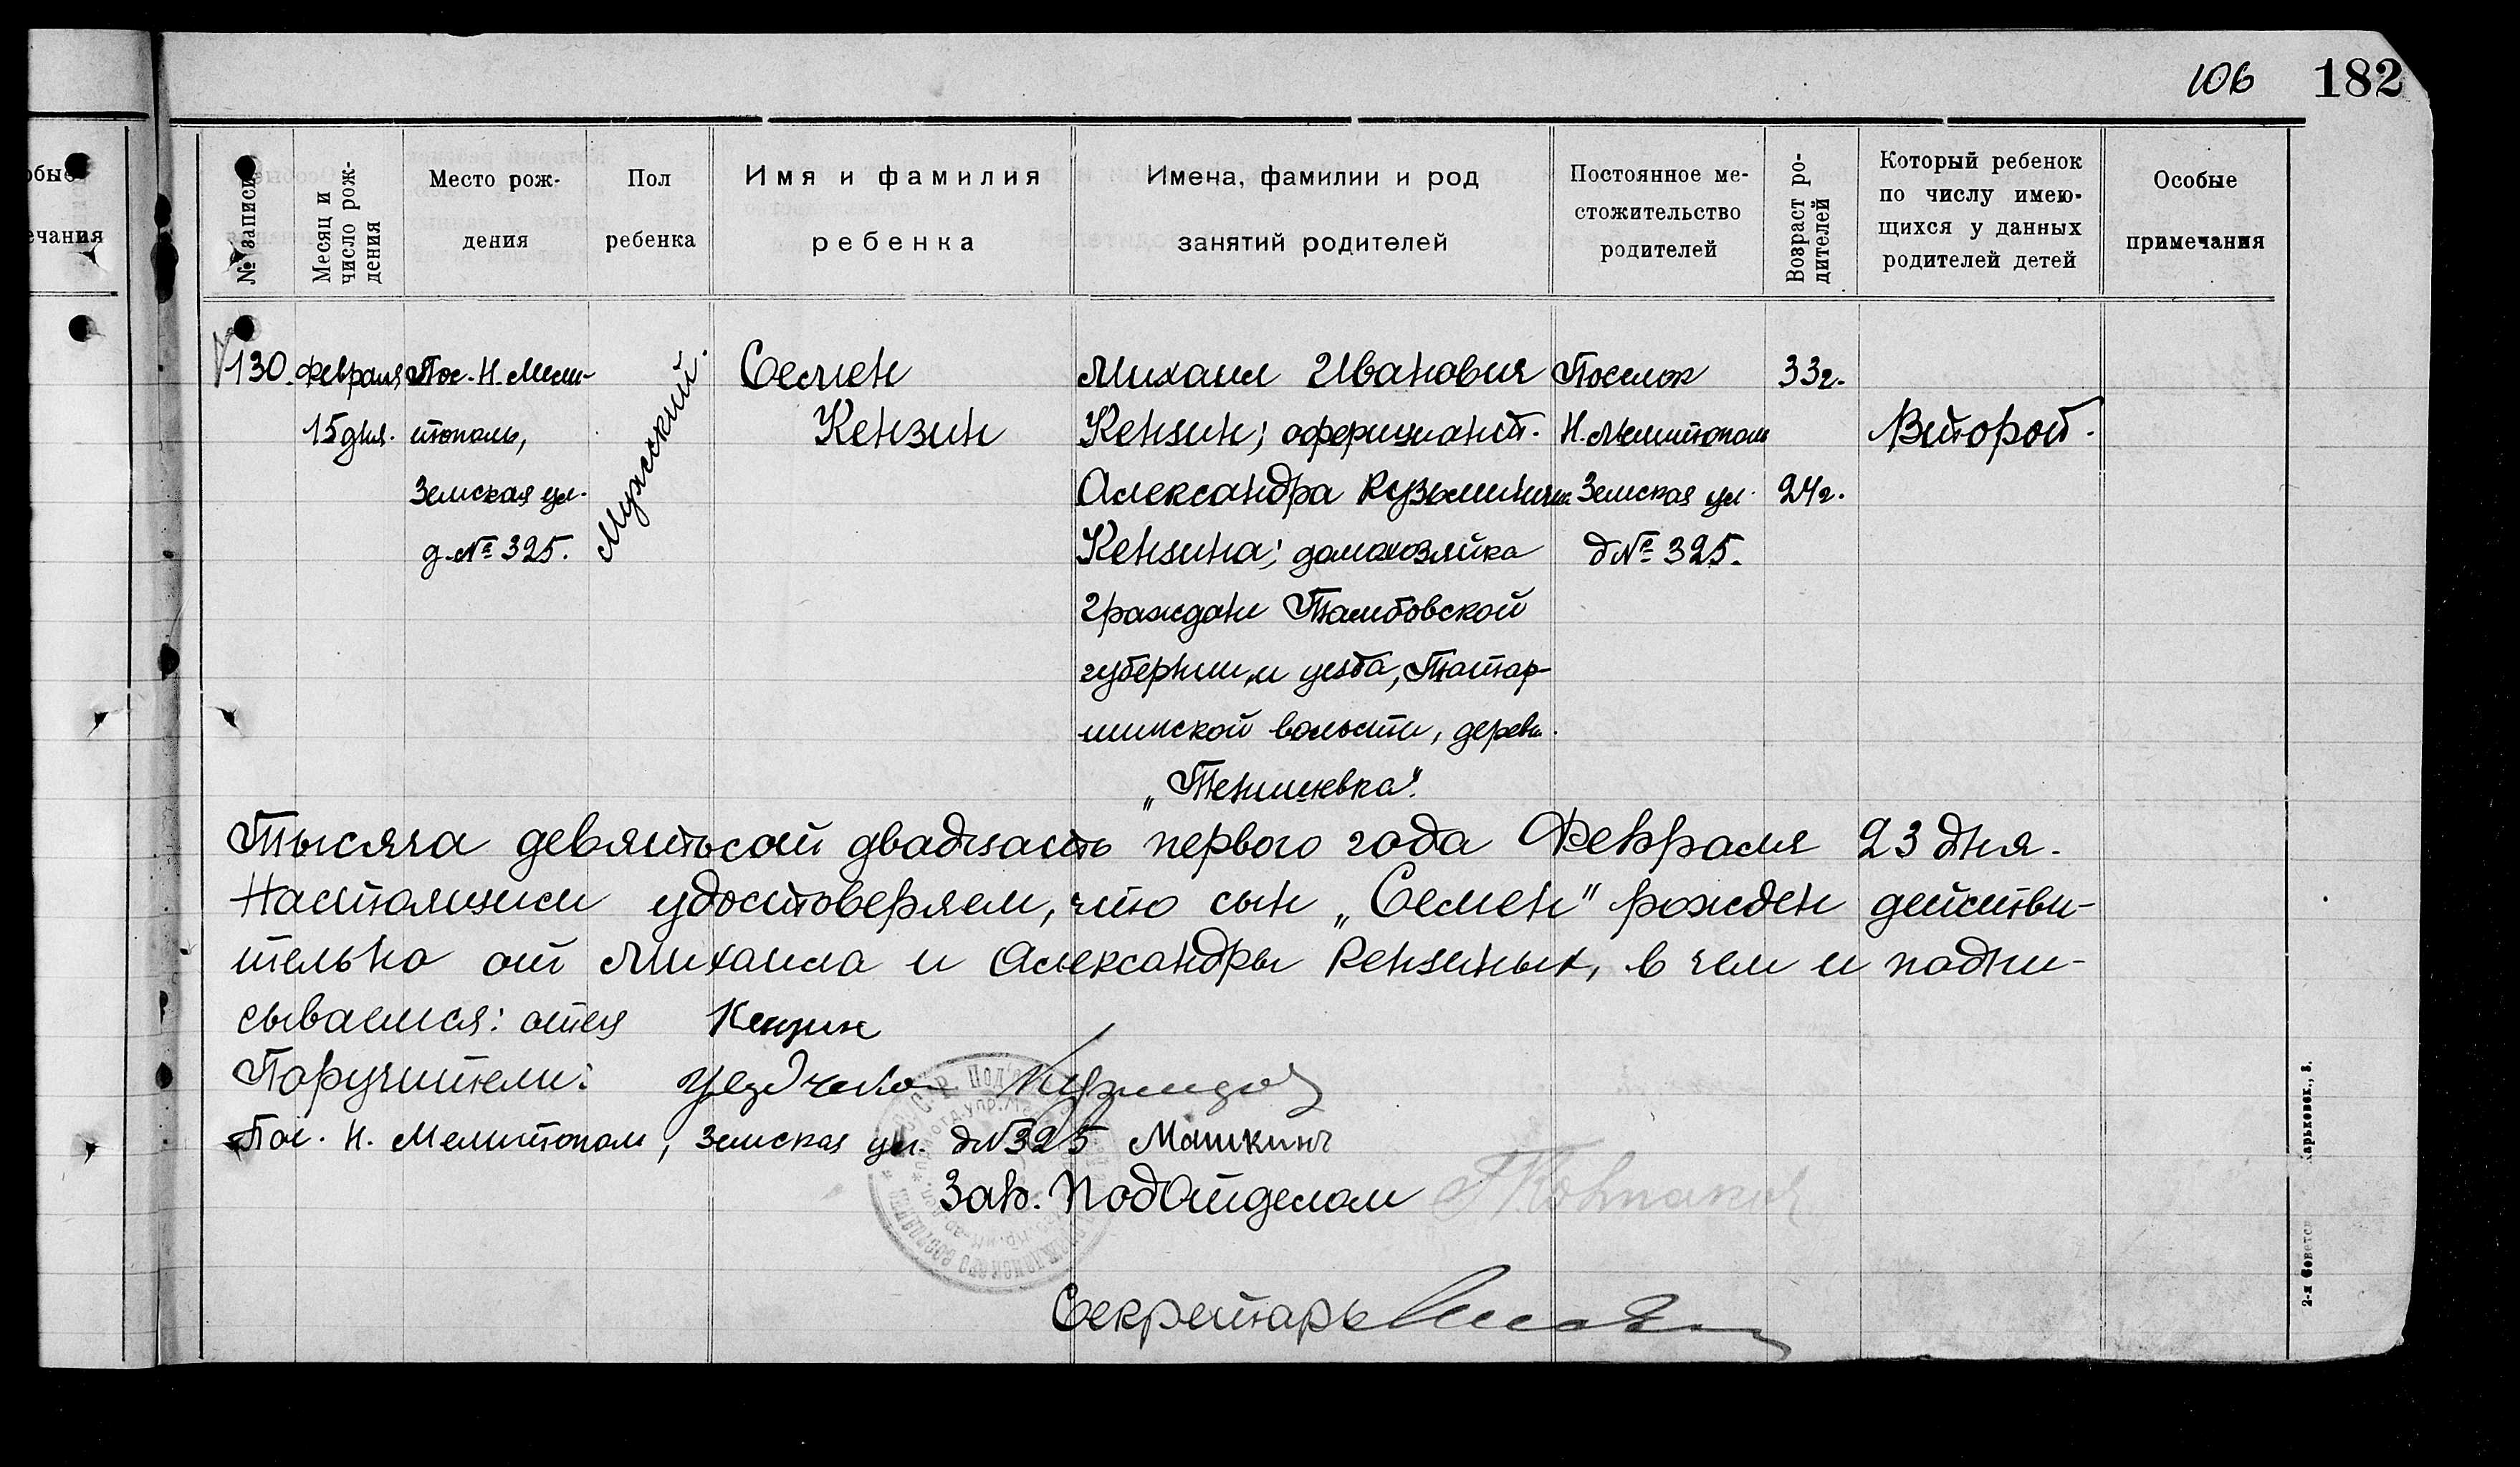 106 182
№ записи
Месяц и число рождения
Место рождения
Пол ребенка
Имя и фамилия ребенка
Имена, фамилии и род занятий родителей
Постоянное местожительство родителей
Возраст родителей
Который ребенок по числу имеющихся у данных родителей детей
Особые примечания
130.
Февраля
15 дня.
Пос. Н. Мели-
тополь,
Земская ул.
д. № 325.
Мужский.
Семен
Кензин
Михаил Иванович
Кензин; официант.
Александра Кузьминична
Кензина; домохозяйка
граждане Тамбовской
губернии, и уезда, Татар-
шинской волости, дерев.
„Тенишевка".
Поселок
Н. Мелитополь
Земская ул.
д № 325.
33 г.
24 г.
Второй.
Тысяча девятьсот двадцать первого года Февраля 23 дня.
Настоящим удостоверяем, что сын „Семен" рожден действи-
тельно от Михаила и Александры Кензиных, в чем и подпи-
сываемся: отец Кензин
Поручители:
Пос. Н. Мелитополь, Земская ул. д № 325 Машкинъ
Зав. Подотделом
Секретарь